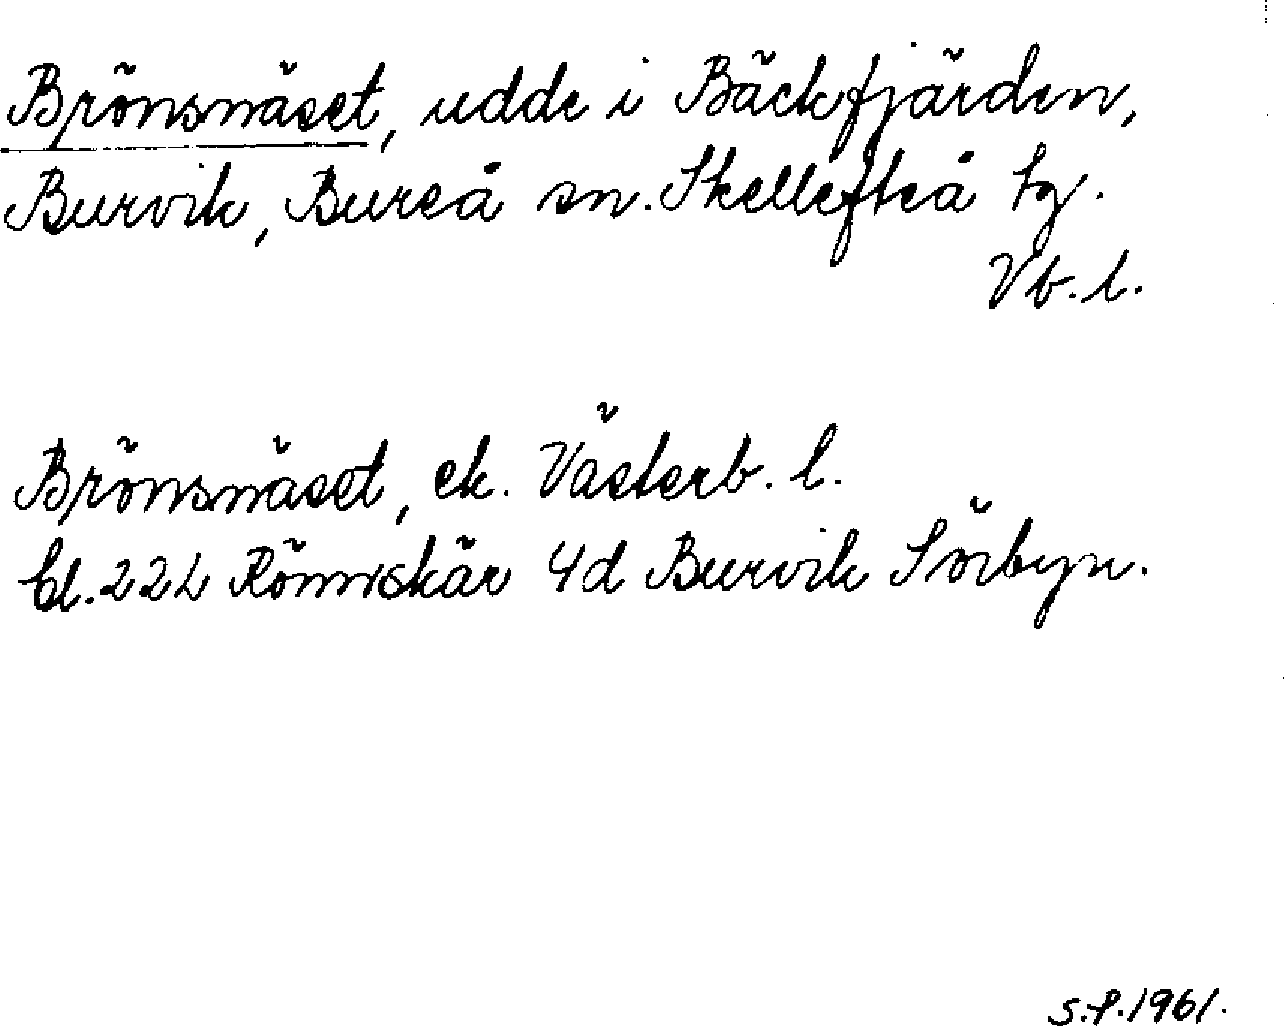 Brönsnäset, udde i Bäckfjärden,
Burvik, Bureå sn. Skellefteå tg.
Vb. l.
Brönsnäset, ek. Västerb. l.
bl. 22L Rönnskär 4d Burvik Sörbyn.
S.P. 1961.